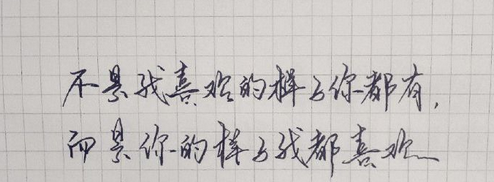 不是我喜欢的样子你都有,
而是你的样子我都喜欢